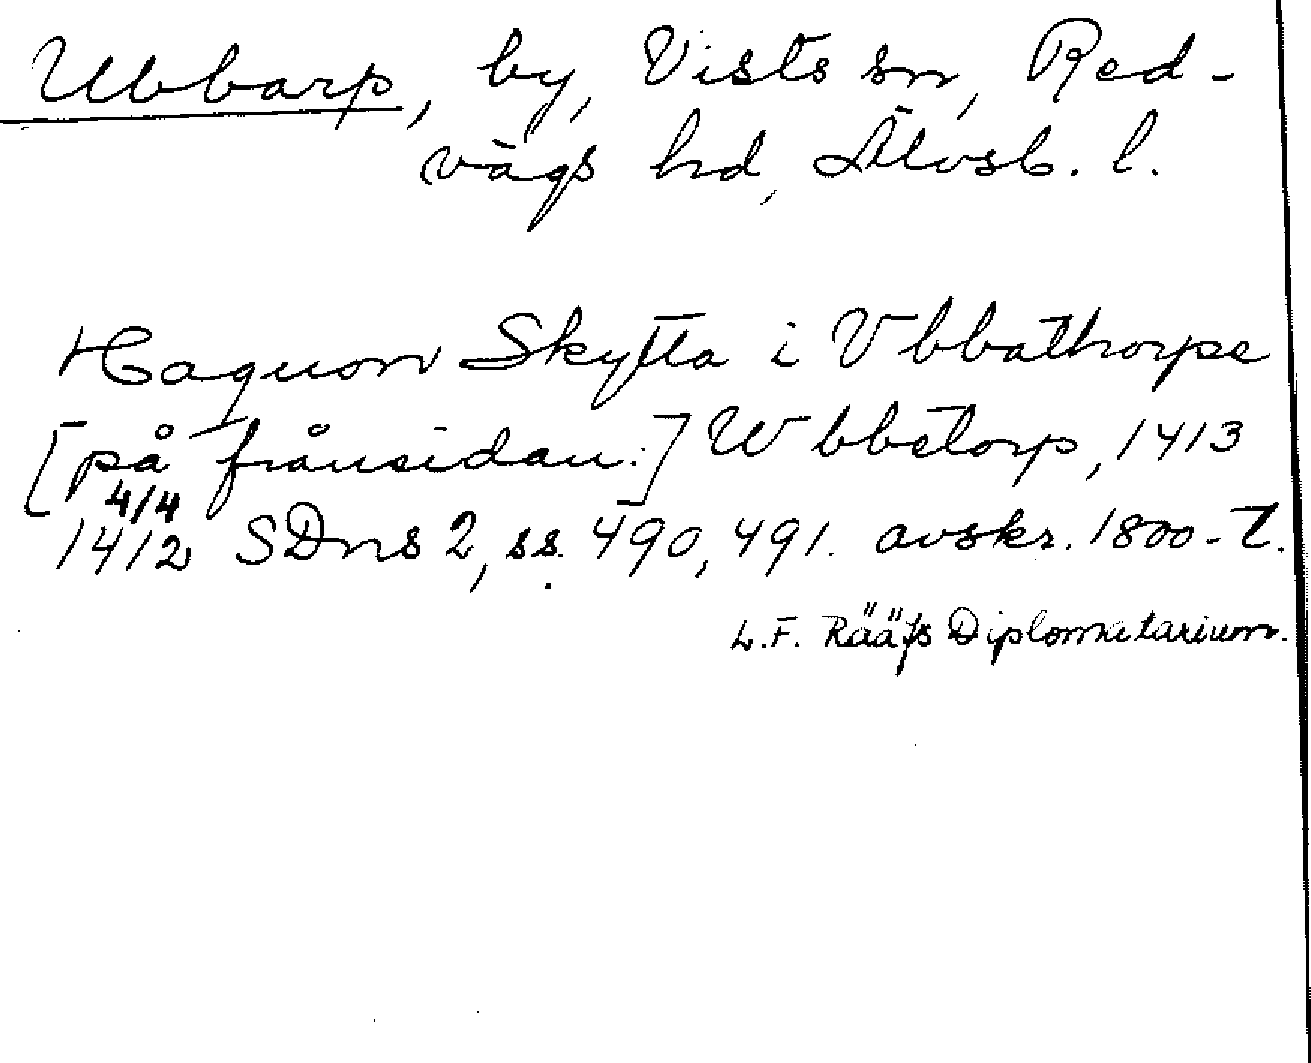 Ubbarp, by, Vists sn, Red-
vägs hd, Älvsb. l.
Haquon Skytta i Vbbathorpe
[på frånsidan:] Wbbetorp, 1413
4/4
1412 SDns 2, ss. 490, 491. avskr. 1800-t.
L. F. Rääfs Diplomatarium.